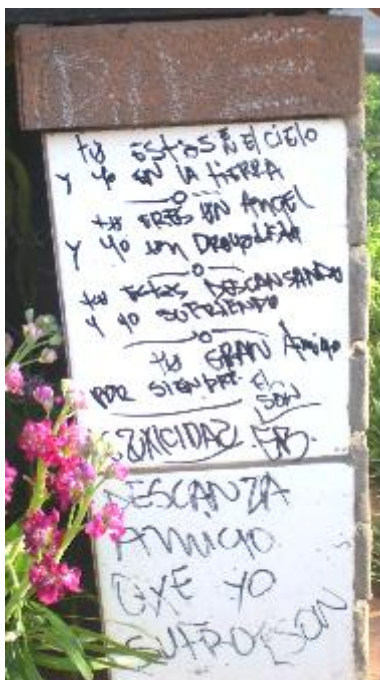 tu EStAS EN El CiElO
y yo EN LA tiERRA
tu ERES UN ANGEL
y yo UN
tu EStAS DESCANSANDO
y yo SUFRIENDO
tu GRAN Amigo
POR SIEMPRE El
SON
DESCANZA
AMIGO
QXE YO
SUFRO SON